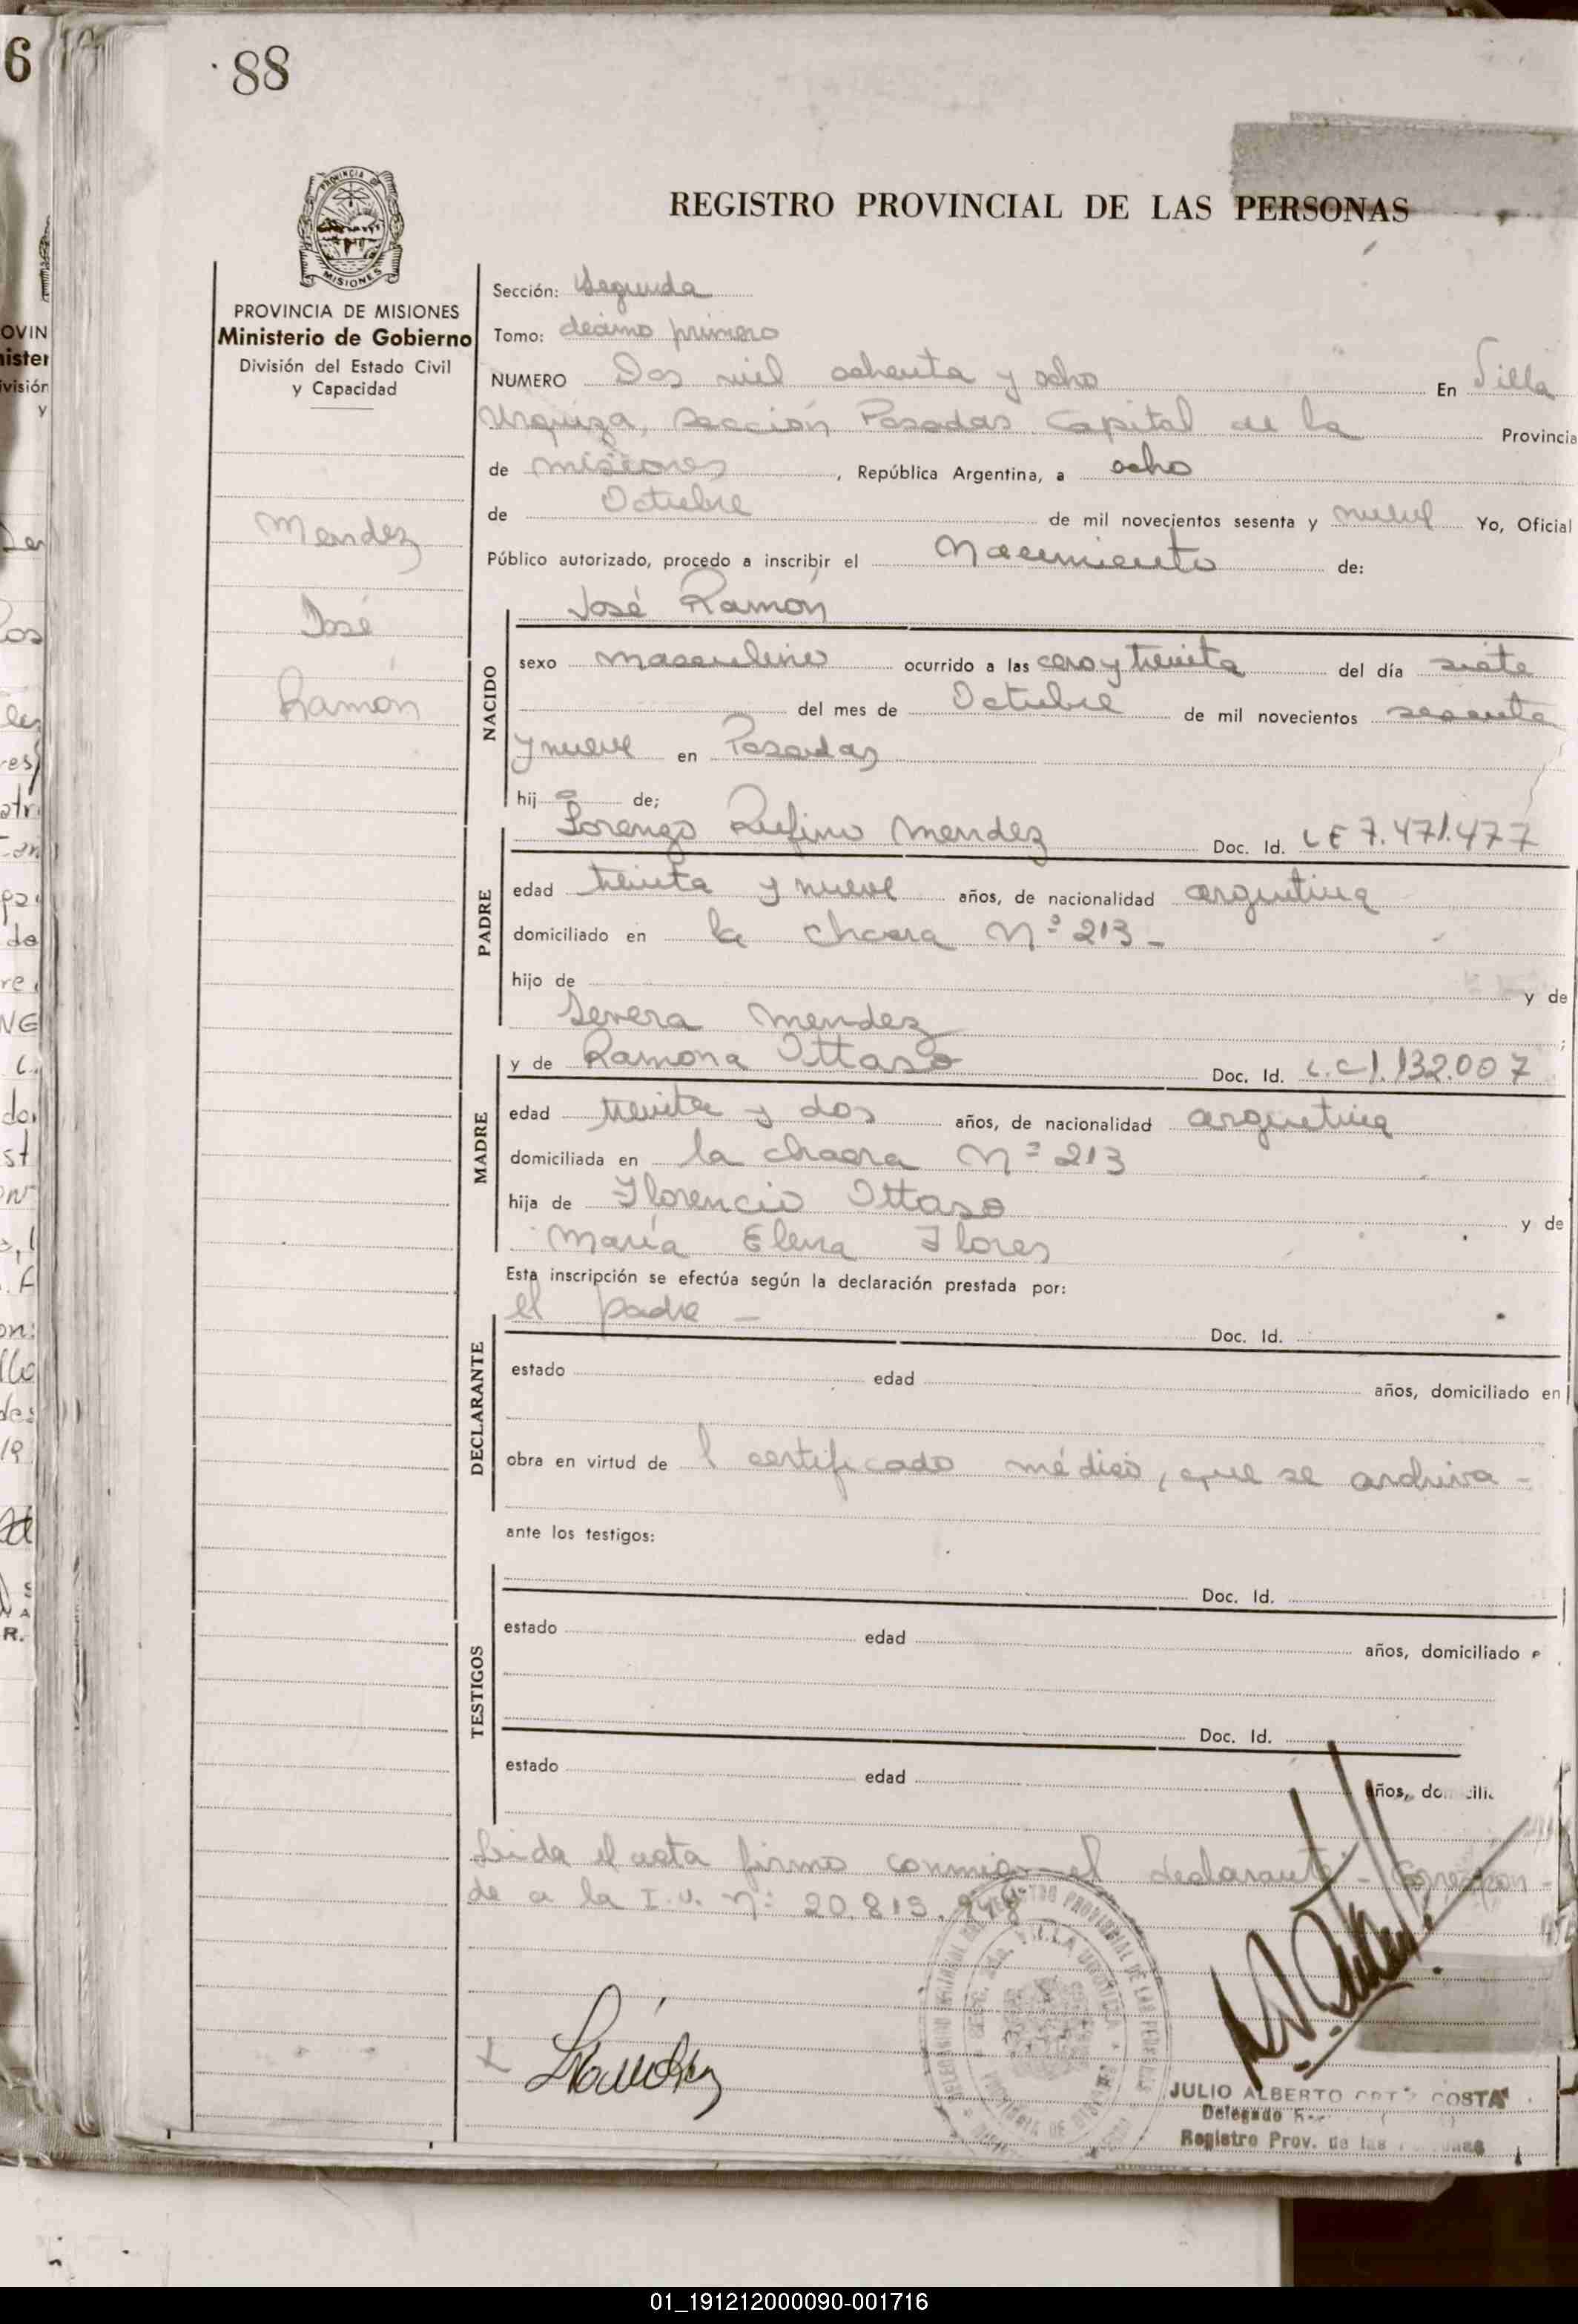 88
PROVINCIA DE
MISIONES
REGISTRO PROVINCIAL DE LAS PERSONAS
PROVINCIA DE MISIONES
Ministerio de Gobierno
División del Estado Civil
y Capacidad
Mendez
José
Ramón
Sección: Segunda
Tomo: décimo primero
NUMERO Dos mil ochenta y ocho En Villa
Urquiza, Sección Posadas Capital de la Provincia
de misiones, República Argentina, a ocho
de Octubre de mil novecientos sesenta y nueve Yo, Oficial
Público autorizado, procedo a inscribir el Nacimiento de:
NACIDO
José Ramón
sexo masculino ocurrido a las cero y treinta del día siete
del mes de Octubre de mil novecientos sesenta
y nueve en Posadas
hijo de;
PADRE
Lorenzo Rufino Mendez Doc. Id. LE 7.471.477
edad treinta y nueve años, de nacionalidad argentina
domiciliado en la chacra Nº 213 -
hijo de y de
Severa Mendez ;
MADRE
y de Ramona Ottaso Doc. Id. L.C 1.132.007
edad treinta y dos años, de nacionalidad argentina
domiciliada en la chacra Nº 213
hija de Florencio Ottaso y de
María Elena Flores
Esta inscripción se efectúa según la declaración prestada por:
DECLARANTE
el padre - Doc. Id.
estado edad años, domiciliado en
obra en virtud de l certificado médico, que se archiva -
ante los testigos:
TESTIGOS
Doc. Id.
estado edad años, domiciliado
Doc. Id.
estado edad años,
Leida el acta firma conmigo el declarante - Correspon -
de a la I.U. Nº: 20.813.948
Mendez
JULIO ALBERTO COSTA
Delegado
Registro Prov. de las
01_191212000090-001716